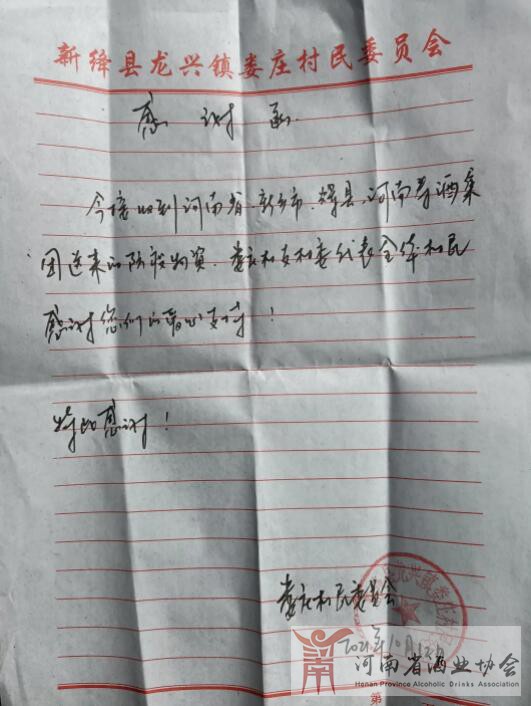 新绛县龙兴镇娄庄村民委员会
感谢函
今接收到河南省、新乡市、辉县、河南寿酒集
团送来的防疫物资。娄庄村支村委代表全体村民
感谢您们的爱心支持！
特此感谢！
娄庄村民委员会
2021年10月
河南省酒业协会
Henan Province Alcoholic Drinks Association
第